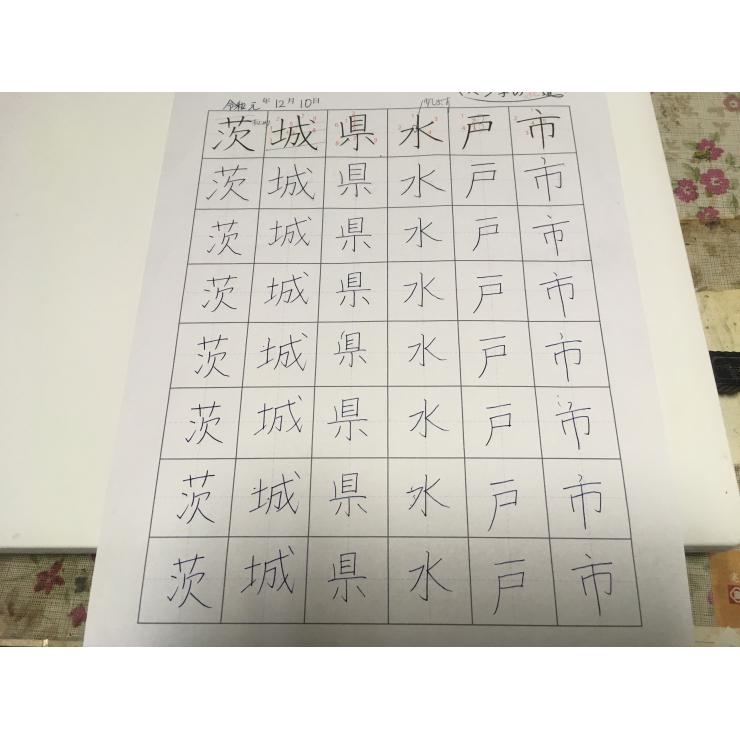 令和元年12月10日
茨城県水戸市
茨城県水戸市
茨城県水戸市
茨城県水戸市
茨城県水戸市
茨城県水戸市
茨城県水戸市
茨城県水戸市